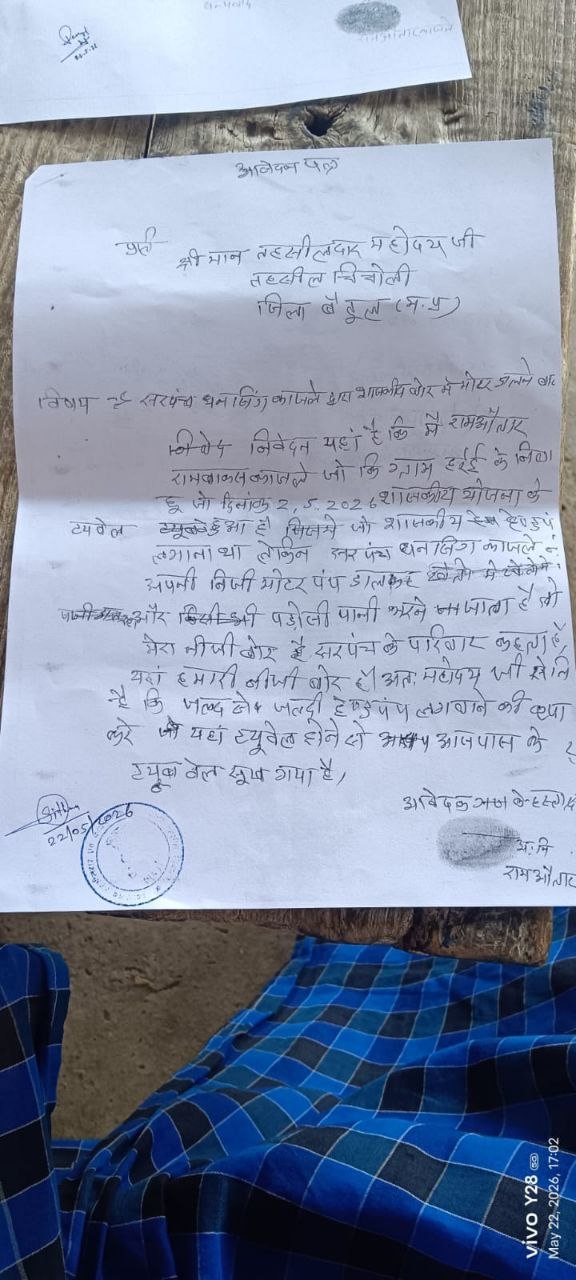 धन्यवाद
आवेदन पत्र
प्रति
श्री मान तहसीलदार महोदय जी
तहसील चिचोली
जिला बैतूल (म.प्र)
विषय :- सरपंच धनसिंग काजले द्वारा शासकीय बोर मे मोटर डालने बाब
निवेदन यहां है कि मै रामऔतार
रामबाकस काजले जो कि ग्राम हरई के निवा
हू जो दिनांक 2.5.2026 शासकीय योजना के
टयवेल हुआ है जिसमे जो शासकीय हेण्डपंप
लगाना था लेकिन सरपंच धनसिंग काजले ने
अपनी निजी मोटर पंप डालकर
और पड़ोसी पानी भरने जाता है तो
मेरा नीजी बोर है सरपंच के परिवार कहता है
यहां हमारी नीजी बोर है। अतः महोदय जी से
है कि जल्द से जल्दी हेण्डपंप लगवाने की कृपा
करे जो यहां टयूवेल होने से आसपास के
टयूब वेल सूख गया है,
22/05/2026
आवेदक के हस्ता
अ.नि
रामऔतार
vivo Y28 5G
May 22, 2026, 17:02